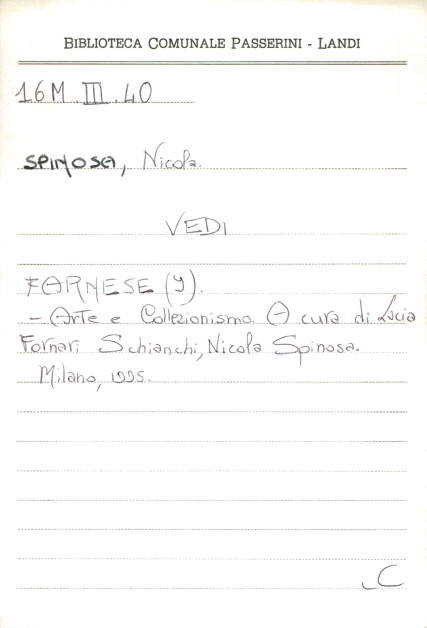 BIBLIOTECA COMUNALE PASSERINI - LANDI
16M.III.40
SPINOSA, Nicola.
VEDI
FARNESE (I).
- Arte e Collezionismo. A cura di Lucia
Fornari Schianchi, Nicola Spinosa.
Milano, 1995.
C